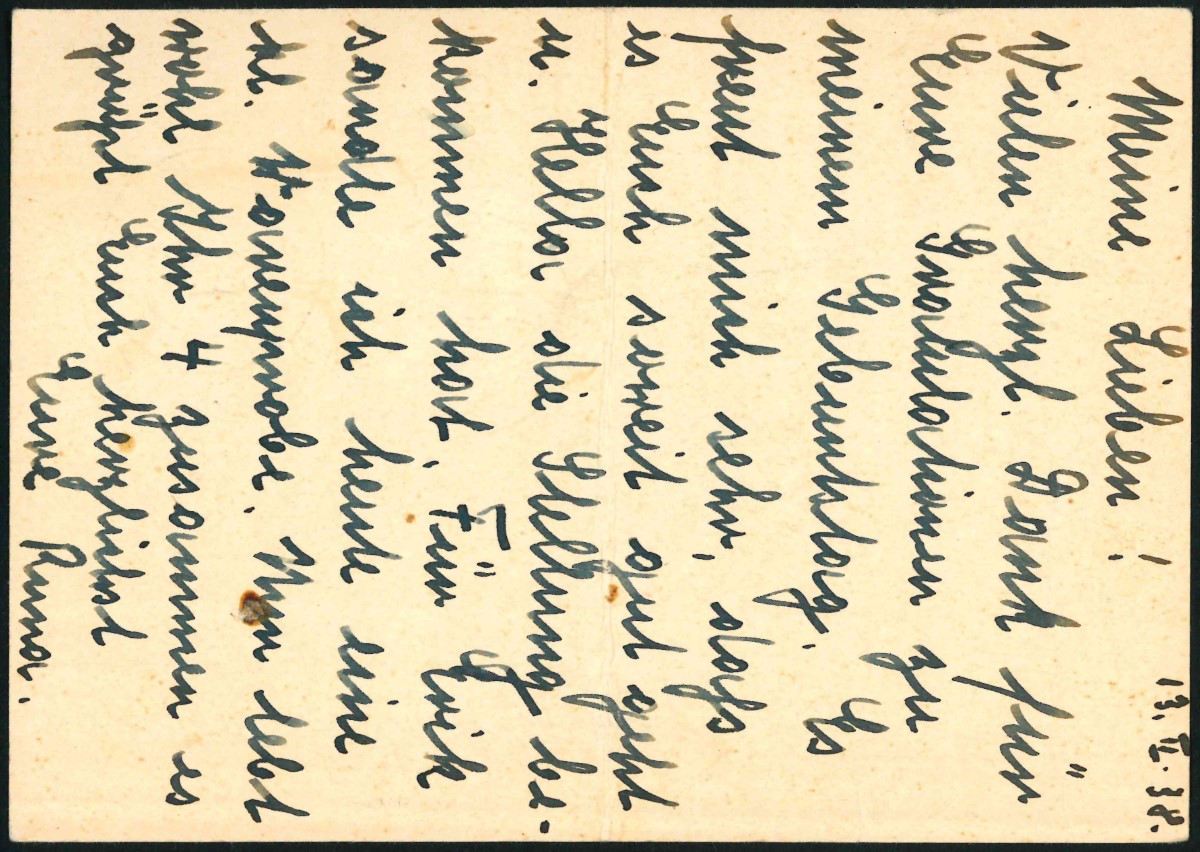 13. II. 38.
Meine Lieben!
Vielen herzl. Dank für
Eure Gratulationen zu
meinem Geburtstag. Es
freut mich sehr, dass
es Euch soweit gut geht
u. Hella die Stellung be-
kommen hat. Für Erik
sandte ich heute eine
kl. Warenprobe. Nun lebt
wohl Ihr 4 zusammen es
grüßt Euch herzlichst
Eure Runa.